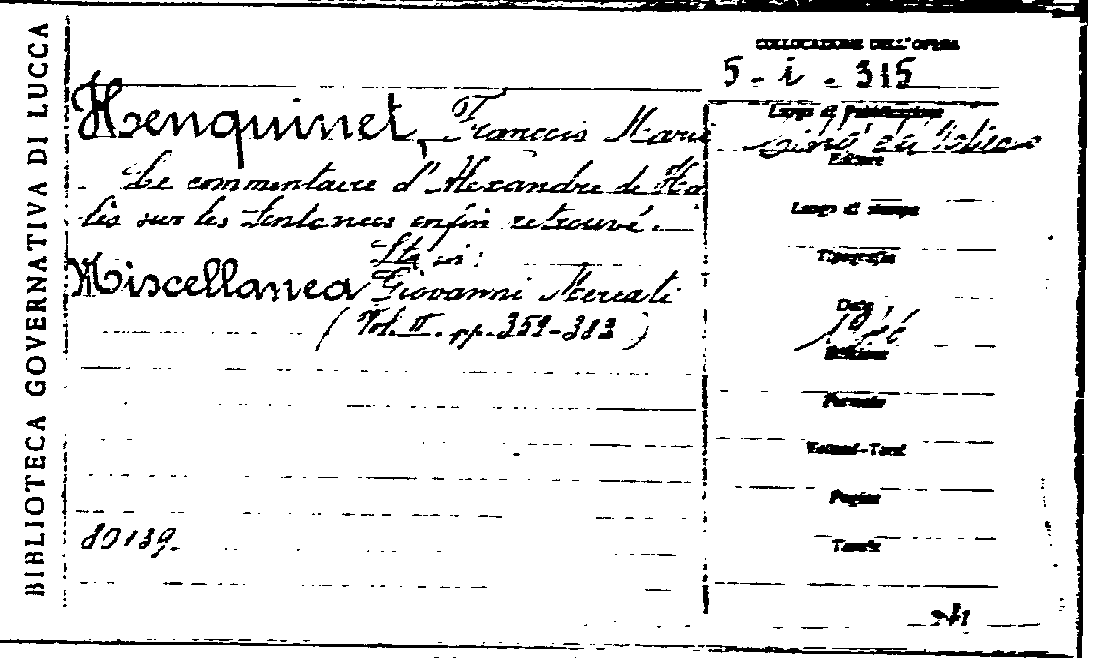 BIBLIOTECA GOVERNATIVA DI LUCCA
COLLOCAZIONE DELL'OPERA
5 - i - 315
Henquinet, François Marie
Le commentaire d'Alexandre de Ha
lès sur les Sentences enfin retrouvé.
Sta in:
Miscellanea Giovanni Mercati
(Vol. II. pp. 359-383)
80139.
Luogo di Pubblicazione
Città del Vatic
Editore
Luogo di stampa
Tipografia
Data
1946
Edizione
Formato
Volumi-Tomi
Pagine
Tavole